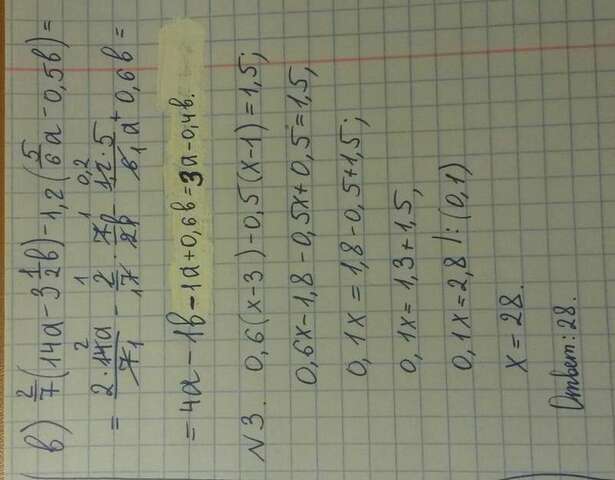 в) 2/7(14а-3 1/2в)-1,2(5/6а-0,5в)=
= 2·14а/7 - 2/7·7/2в - 1,2·5/6а+0,6в=
=4а-1в-1а+0,6в=3а-0,4в.
N3. 0,6(х-3)-0,5(х-1)=1,5;
0,6х-1,8-0,5х+0,5=1,5,
0,1х=1,8-0,5+1,5;
0,1х=1,3+1,5,
0,1х=2,8 |:(0,1)
х=28.
Ответ: 28.